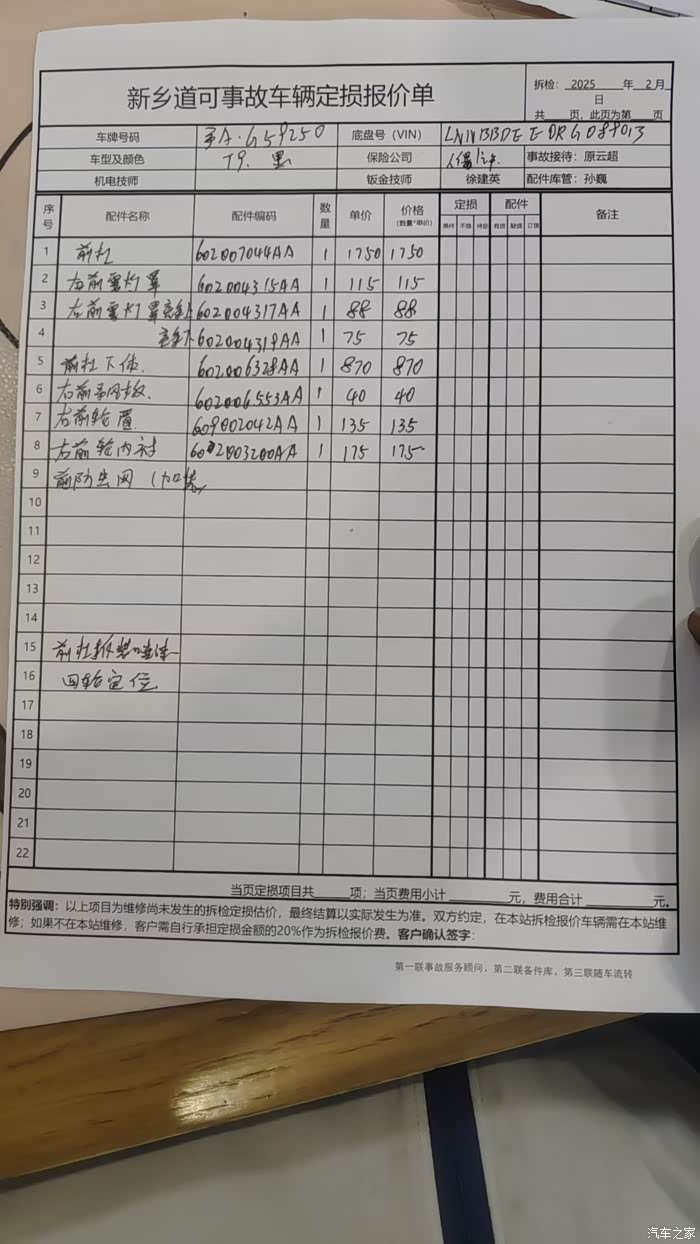 新乡道可事故车辆定损报价单
拆检: 2025 年 2 月
日
共 页, 此页为第 页
车牌号码 A·G59250 底盘号 (VIN)
车型及颜色 T9. 黑 保险公司 事故接待: 原云超
机电技师 钣金技师 徐建英 配件库管: 孙巍
序号 配件名称 配件编码 数量 单价 价格 (数量*单价) 定损 配件 备注
换件 不换 待定 有货 缺货 订货
1 前杠 602007044AA 1 1750 1750
2 右前雾灯罩 602004315AA 1 115 115
3 右前雾灯罩 602004317AA 1 88 88
4 602004319AA 1 75 75
5 前杠下体. 602006328AA 1 870 870
6 右前导风板. 602006553AA 1 40 40
7 右前轮眉 609002042AA 1 135 135
8 右前轮内衬 602003200AA 1 175 175
9 前防虫网 (加装)
10
11
12
13
14
15 前杠拆装喷漆
16 四轮定位
17
18
19
20
21
22
当页定损项目共 项; 当页费用小计 元, 费用合计 元。
特别强调: 以上项目为维修尚未发生的拆检定损估价, 最终结算以实际发生为准。双方约定, 在本站拆检报价车辆需在本站维
修; 如果不在本站维修, 客户需自行承担定损金额的20%作为拆检报价费。客户确认签字:
第一联事故服务顾问, 第二联备件库, 第三联随车流转
汽车之家